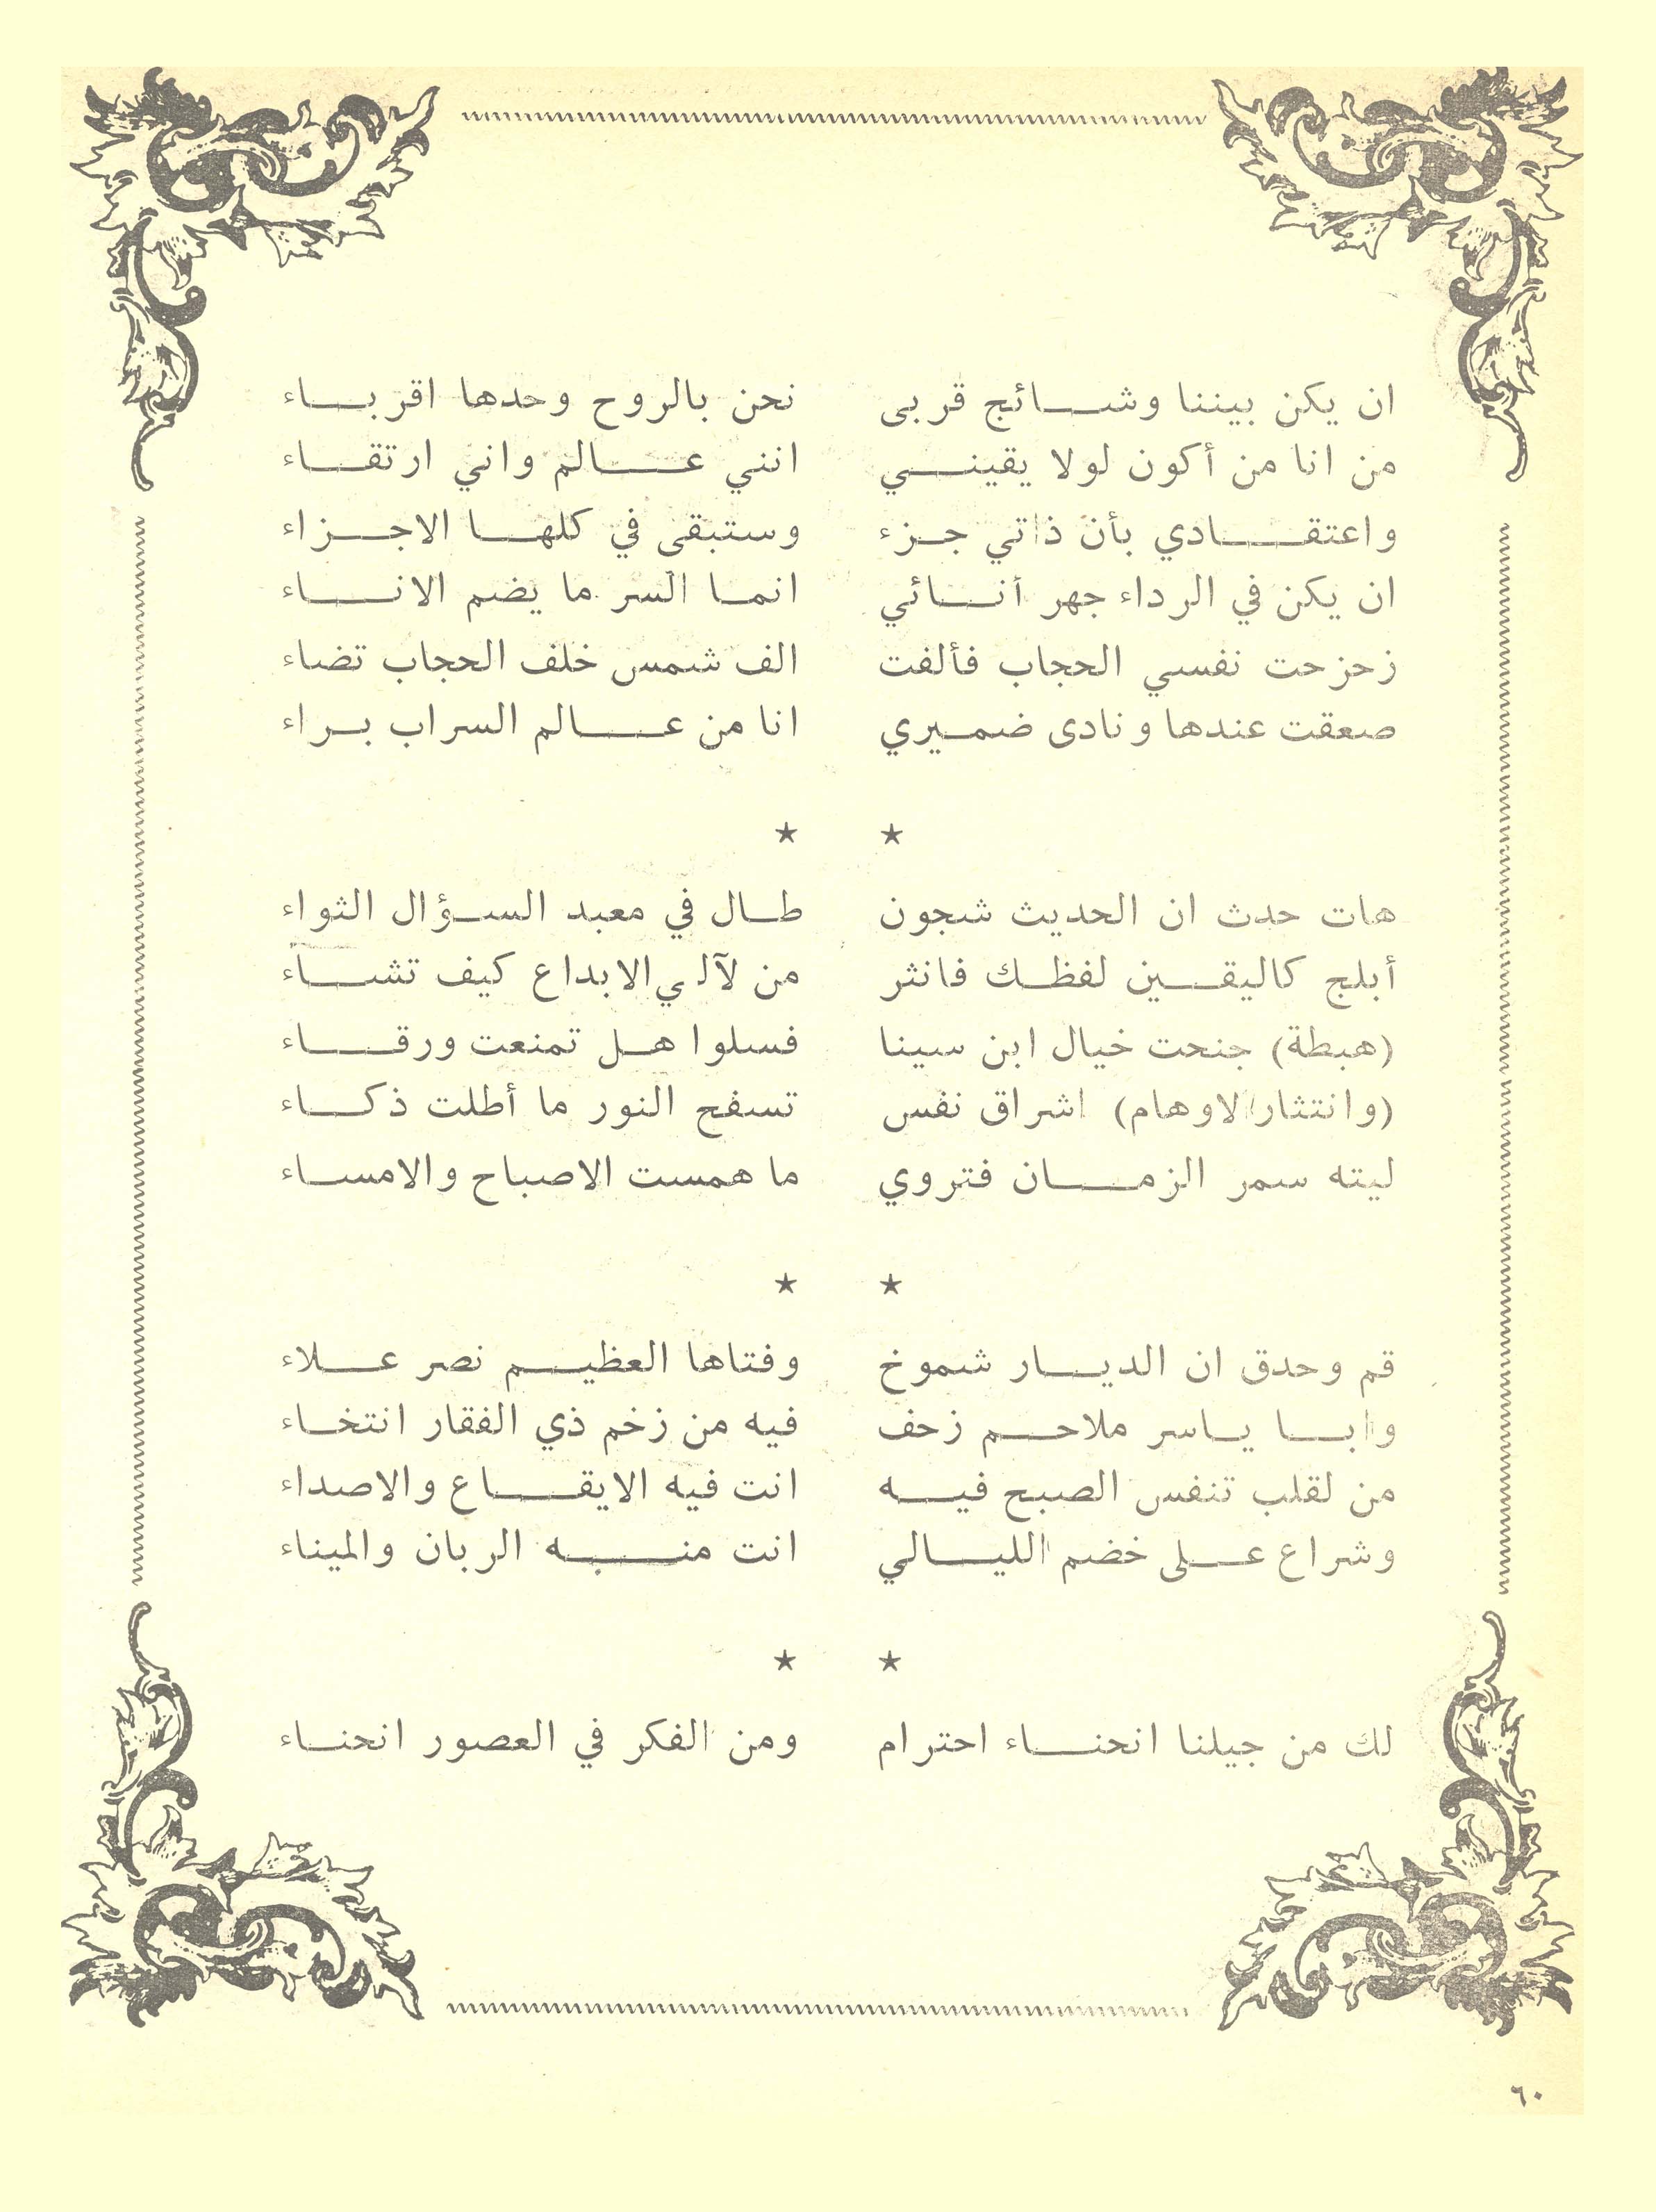 ان يكن بيننا وشائج قربى نحن بالروح وحدها اقرباء
من انا من أكون لولا يقيني انني عالم واني ارتقاء
واعتقادي بأن ذاتي جزء وستبقى في كلها الاجزاء
ان يكن في الرداء جهر أنائي انما السر ما يضم الاناء
زحزحت نفسي الحجاب فألفت الف شمس خلف الحجاب تضاء
صعقت عندها ونادى ضميري انا من عالم السراب براء
★ ★
هات حدث ان الحديث شجون طال في معبد السؤال الثواء
أبلج كاليقين لفظك فانثر من لآلي الابداع كيف تشاء
(هبطة) جنحت خيال ابن سينا فسلوا هل تمنعت ورقاء
(وانتثار الاوهام) اشراق نفس تسفح النور ما أطلت ذكاء
ليته سمر الزمان فتروي ما همست الاصباح والامساء
★ ★
قم وحدق ان الديار شموخ وفتاها العظيم نصر علاء
وابا ياسر ملاحم زحف فيه من زخم ذي الفقار انتخاء
من لقلب تنفس الصبح فيه انت فيه الايقاع والاصداء
وشراع على خضم الليالي انت منبه الربان والميناء
★ ★
لك من جيلنا انحناء احترام ومن الفكر في العصور انحناء
٦٠